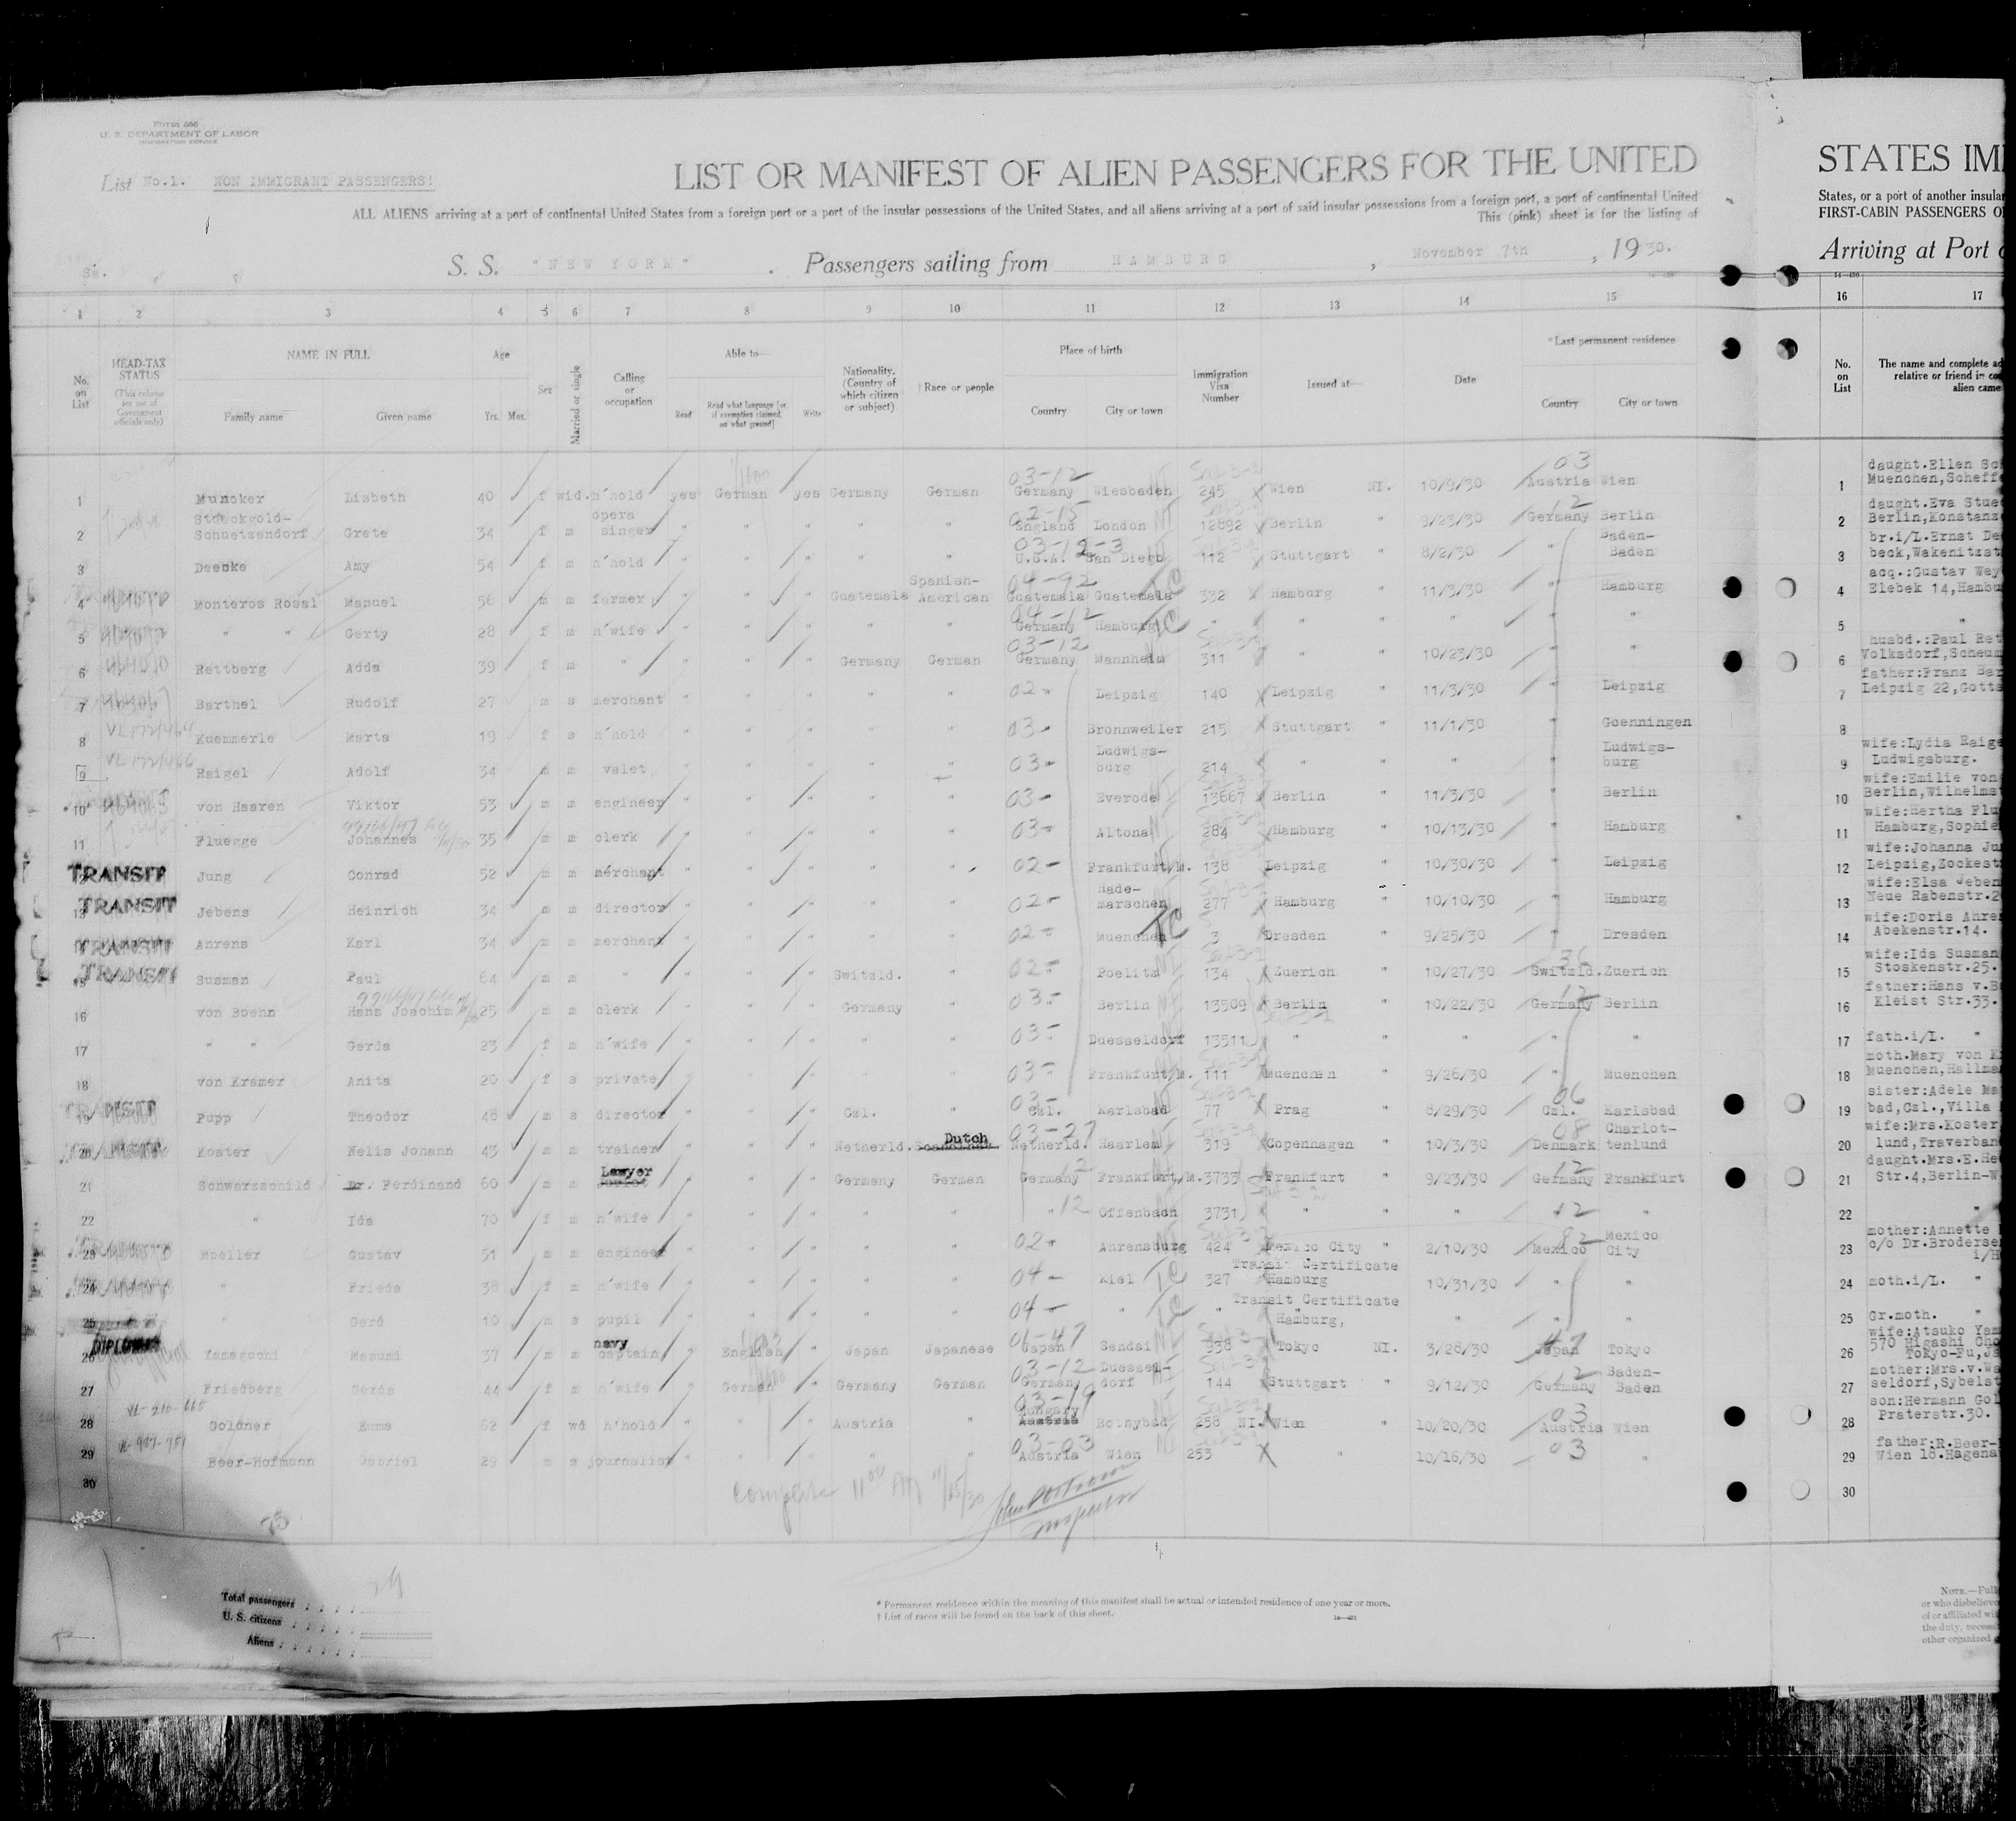 Form 500
U. S. DEPARTMENT OF LABOR
IMMIGRATION SERVICE
List No.1. NON IMMIGRANT PASSENGERS!
LIST OR MANIFEST OF ALIEN PASSENGERS FOR THE UNITED
STATES IMI
ALL ALIENS arriving at a port of continental United States from a foreign port or a port of the insular possessions of the United States, and all aliens arriving at a port of said insular possessions from a foreign port, a port of continental United
States, or a port of another insular
This (pink) sheet is for the listing of
FIRST-CABIN PASSENGERS O
S. S. "NEW YORK" . Passengers sailing from HAMBURG , November 7th , 19 30.
Arriving at Port
1 2 3 4 5 6 7 8 9 10 11 12 13 14 15 16 17
No. on List
HEAD-TAX STATUS
(This column for use of Government officials only)
NAME IN FULL
Family name Given name
Age
Yrs. Mos.
Sex
Married or single
Calling or occupation
Able to—
Read
Read what language [or, if exemption claimed, on what ground]
Write
Nationality. (Country of which citizen or subject)
† Race or people
Place of birth
Country City or town
Immigration Visa Number
Issued at—
Date
* Last permanent residence
Country City or town
No. on List
The name and complete ad
relative or friend in co
alien came
1 Muncker Lisbeth 40 f wid. h'hold yes German yes Germany German 03-12 Germany Wiesbaden 245 Wien NI. 10/9/30 03 Austria Wien 1 daught.Ellen Sc Muenchen,Scheff
2 Stueckgold-Schuetzendorf Grete 34 f m opera singer " " " " " 02-15 England London 12892 Berlin " 9/23/30 12 Germany Berlin 2 daught.Eva Stue Berlin,Konstanz
3 Deecke Amy 54 f m h'hold " " " " " 03-12-3 U.S.A. San Diego 112 Stuttgart " 8/2/30 " Baden-Baden 3 br.i/L.Ernst De beck,Wakenitzst
4 Monteros Rosal Manuel 56 m m farmer " " " Guatemala Spanish-American 04-92 Guatemala Guatemala TC 332 Hamburg " 11/3/30 " Hamburg 4 acq.:Gustav Wey Elebek 14,Hambu
5 " " Gerty 28 f m h'wife " " " " " 04-12 Germany Hamburg TC " " " " " " 5 "
6 Rettberg Adda 39 f m " " " " Germany German 03-12 Germany Mannheim 311 " " 10/23/30 " " 6 husbd.:Paul Ret Volksdorf,Scheum
7 Barthel Rudolf 27 m s merchant " " " " " 02- Leipzig 140 Leipzig " 11/3/30 " Leipzig 7 father:Franz Bar Leipzig 22,Gotts
8 VL172/464 Kuemmerle Marta 19 f s h'hold " " " " " 03- Bronnweiler 215 Stuttgart " 11/1/30 " Goenningen 8
9 VL-172/466 Raigel Adolf 34 m m valet " " " " " 03- Ludwigs-burg 214 " " " " Ludwigs-burg 9 wife:Lydia Raige Ludwigsburg.
10 von Haaren Viktor 53 m m engineer " " " " " 03- Everode 13667 Berlin " 11/3/30 " Berlin 10 wife:Emilie von Berlin,Wilhelms
11 Fluegge Johannes 35 m m clerk " " " " " 03- Altona 284 Hamburg " 10/13/30 " Hamburg 11 wife:Hertha Flu Hamburg,Sophie
TRANSIT 12 Jung Conrad 52 m m merchant " " " " " 02- Frankfurt/M. 138 Leipzig " 10/30/30 " Leipzig 12 wife:Johanna Ju Leipzig,Zockest
TRANSIT 13 Jebens Heinrich 34 m m director " " " " " 02- Hade-marschen 277 Hamburg " 10/10/30 " Hamburg 13 wife:Elsa Jeben Neue Rabenstr.2
TRANSIT 14 Ahrens Karl 34 m m merchant " " " " " 02- Muenchen TC 3 Dresden " 9/25/30 " Dresden 14 wife:Doris Ahre Abekenstr.14.
TRANSIT 15 Susman Paul 64 m m " " " " Switzld. " 02- Poelitz 134 Zuerich " 10/27/30 Switzld. Zuerich 15 wife:Ida Susman Stoskenstr.25.
16 von Boehn Hans Joachim 25 m m clerk " " " Germany " 03- Berlin 13509 Berlin " 10/22/30 12 Germany Berlin 16 father:Hans v.B Kleist Str.33.
17 " " Gerda 23 f m h'wife " " " " " 03- Duesseldorf 13511 " " " " " 17 fath.i/L. "
18 von Kramer Anita 20 f s private " " " " " 03- Frankfurt/M. 111 Muenchen " 9/26/30 " Muenchen 18 moth.Mary von K Muenchen,Hallma
TRANSIT 19 Pupp Theodor 48 m s director " " " Czl. " 03- Czl. Karlsbad 77 Prag " 8/29/30 06 Czl. Karlsbad 19 sister:Adele Ma bad,Czl.,Villa
20 Koster Nelis Johann 43 m m trainer " " " Netherld. Dutch 03-27 Netherld. Haarlem 319 Copenhagen " 10/3/30 08 Denmark Charlot-tenlund 20 wife:Mrs.Koster, lund,Traverban
21 Schwarzschild Dr. Ferdinand 60 m m Lawyer " " " Germany German 12 Germany Frankfurt/M. 3733 Frankfurt " 9/23/30 12 Germany Frankfurt 21 daught.Mrs.E.He Str.4,Berlin-W
22 " Ida 70 f m h'wife " " " " " " 12 Offenbach 3731 " " " 12 " 22 "
23 Moeller Gustav 51 m m engineer " " " " " 02- Ahrensburg 424 Mexico City " 2/10/30 82 Mexico Mexico City 23 mother:Annette c/o Dr.Broderse i/H
24 " Frieda 38 f m h'wife " " " " " 04- Kiel TC 327 Transit Certificate Hamburg 10/31/30 " " 24 moth.i/L. "
25 " Gerd 10 m s pupil " " " " " 04- " TC " Transit Certificate Hamburg, " " " 25 Gr.moth. "
DIPLOMAT 26 Yamaguchi Masumi 37 m m navy captain " English " Japan Japanese 06-47 Japan Sendai 938 Tokyo NI. 3/28/30 47 Japan Tokyo 26 wife:Atsuko Yam 570 Higashi Cho Tokyo-Fu,Ja
27 Friedberg Gerda 44 f m h'wife " German " Germany German 03-12 Germany Duessel-dorf 144 Stuttgart " 9/12/30 12 Germany Baden-Baden 27 mother:Mrs.v.We seldorf,Sybelst
28 VL-216-665 Goldner Emma 62 f wd h'hold " " " Austria " 03-19 Hungary Austria Bothybad 258 NI. Wien " 10/20/30 03 Austria Wien 28 son:Hermann Gol Praterstr.30.
29 Beer-Hofmann Gabriel 29 m s journalist " " " " " 03-03 Austria Wien 253 " 10/16/30 03 " 29 father:R.Beer- Wien 18.Hagena
30 30
Complete 11 00 AM 11/15/30
Inspector
Total passengers 29
U. S. citizens
Aliens
* Permanent residence within the meaning of this manifest shall be actual or intended residence of one year or more.
† List of races will be found on the back of this sheet.
NOTE.—Full
or who disbelieve
of or affiliated wi
the duty, necessi
other organized